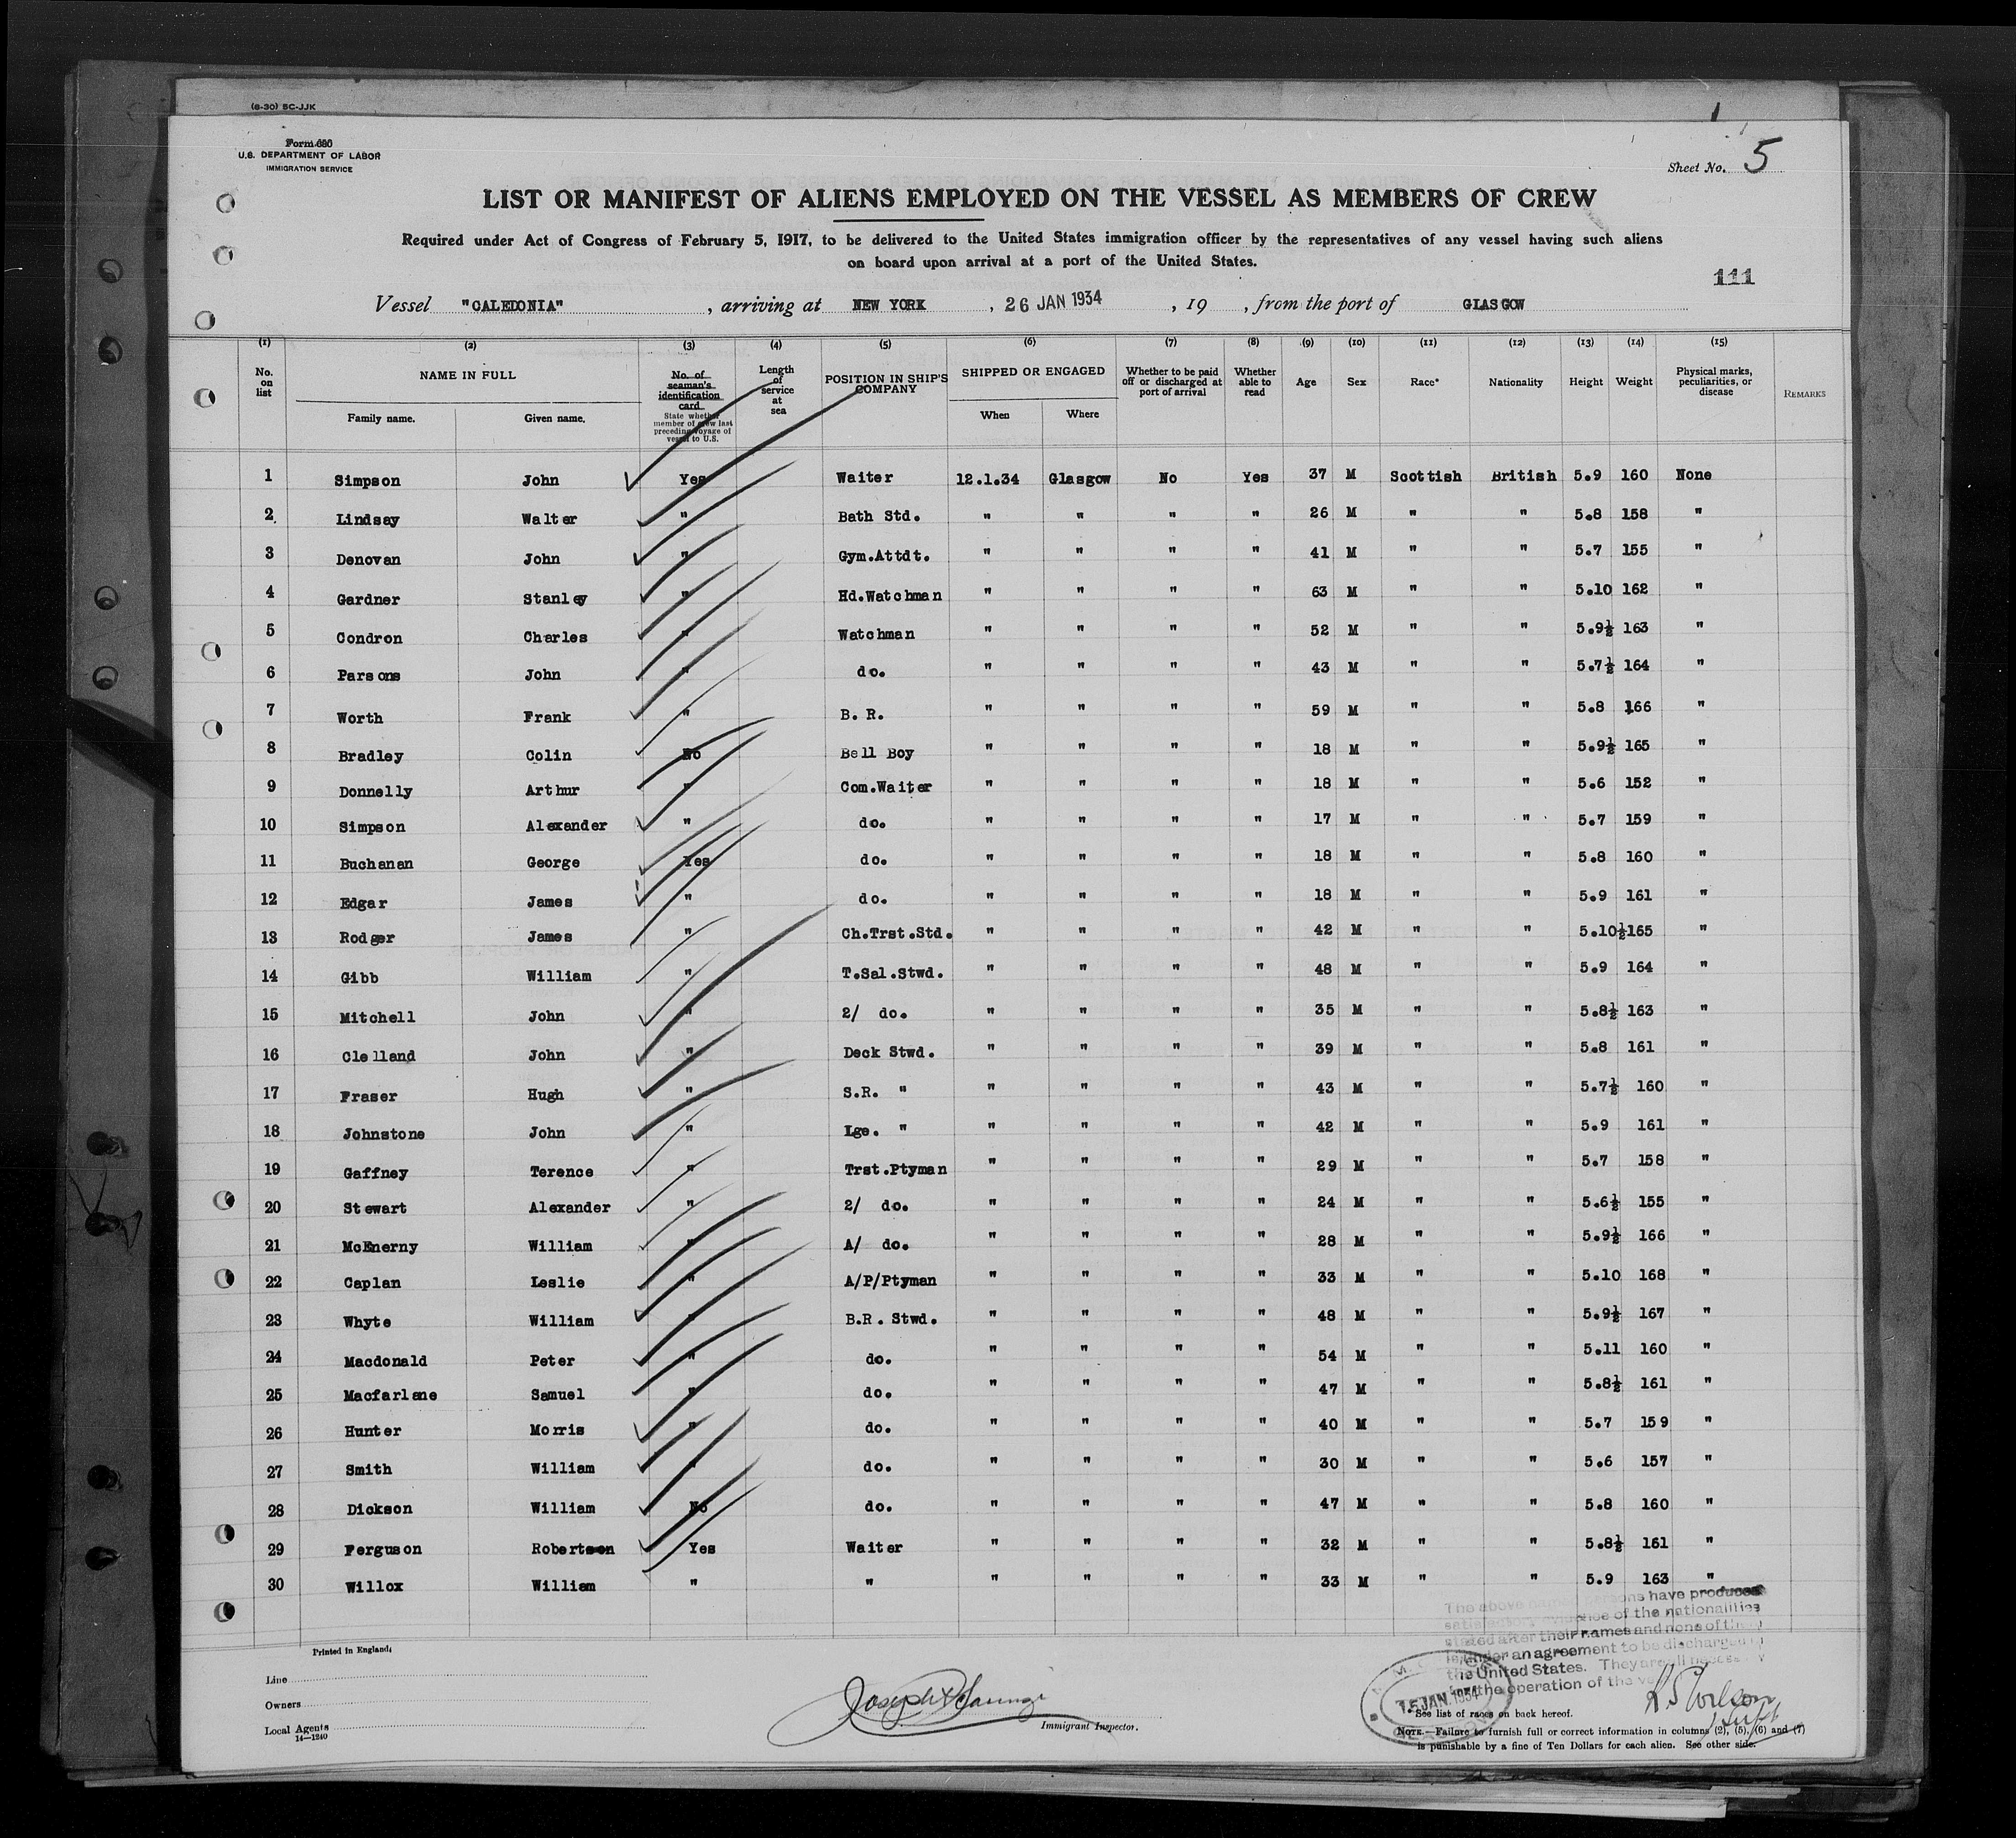 (8-30) BC-JJK
Form 680
U.S. DEPARTMENT OF LABOR
IMMIGRATION SERVICE
Sheet No. 5
LIST OR MANIFEST OF ALIENS EMPLOYED ON THE VESSEL AS MEMBERS OF CREW
Required under Act of Congress of February 5, 1917, to be delivered to the United States immigration officer by the representatives of any vessel having such aliens
on board upon arrival at a port of the United States.
111
Vessel "CALEDONIA", arriving at NEW YORK, 26 JAN 1934, 19 , from the port of GLASGOW
(1) (2) (3) (4) (5) (6) (7) (8) (9) (10) (11) (12) (13) (14) (15)
No. on list
NAME IN FULL
Family name. Given name.
No. of seaman's identification card
State whether member of crew last preceding voyage of vessel to U.S.
Length of service at sea
POSITION IN SHIP'S COMPANY
SHIPPED OR ENGAGED
When Where
Whether to be paid off or discharged at port of arrival
Whether able to read
Age
Sex
Race*
Nationality
Height
Weight
Physical marks, peculiarities, or disease
REMARKS
1 Simpson John Yes Waiter 12.1.34 Glasgow No Yes 37 M Scottish British 5.9 160 None
2 Lindsay Walter " Bath Std. " " " " 26 M " " 5.8 158 "
3 Denovan John " Gym.Attdt. " " " " 41 M " " 5.7 155 "
4 Gardner Stanley " Hd.Watchman " " " " 63 M " " 5.10 162 "
5 Condron Charles " Watchman " " " " 52 M " " 5.9½ 163 "
6 Parsons John " do. " " " " 43 M " " 5.7½ 164 "
7 Worth Frank " B. R. " " " " 59 M " " 5.8 166 "
8 Bradley Colin No Bell Boy " " " " 18 M " " 5.9½ 165 "
9 Donnelly Arthur " Com.Waiter " " " " 18 M " " 5.6 152 "
10 Simpson Alexander " do. " " " " 17 M " " 5.7 159 "
11 Buchanan George Yes do. " " " " 18 M " " 5.8 160 "
12 Edgar James " do. " " " " 18 M " " 5.9 161 "
13 Rodger James " Ch.Trst.Std. " " " " 42 M " " 5.10½ 165 "
14 Gibb William " T.Sal.Stwd. " " " " 48 M " " 5.9 164 "
15 Mitchell John " 2/ do. " " " " 35 M " " 5.8½ 163 "
16 Clelland John " Deck Stwd. " " " " 39 M " " 5.8 161 "
17 Fraser Hugh " S.R. " " " " " 43 M " " 5.7½ 160 "
18 Johnstone John " Lge. " " " " " 42 M " " 5.9 161 "
19 Gaffney Terence " Trst.Ptyman " " " " 29 M " " 5.7 158 "
20 Stewart Alexander " 2/ do. " " " " 24 M " " 5.6½ 155 "
21 McEnerny William " A/ do. " " " " 28 M " " 5.9½ 166 "
22 Caplan Leslie " A/P/Ptyman " " " " 33 M " " 5.10 168 "
23 Whyte William " B.R. Stwd. " " " " 48 M " " 5.9½ 167 "
24 Macdonald Peter " do. " " " " 54 M " " 5.11 160 "
25 Macfarlane Samuel " do. " " " " 47 M " " 5.8½ 161 "
26 Hunter Morris " do. " " " " 40 M " " 5.7 159 "
27 Smith William " do. " " " " 30 M " " 5.6 157 "
28 Dickson William No do. " " " " 47 M " " 5.8 160 "
29 Ferguson Robertson Yes Waiter " " " " 32 M " " 5.8½ 161 "
30 Willox William " " " " " " 33 M " " 5.9 163 "
The above named persons have produced
satisfactory evidence of the nationalities
stated after their names and none of them
is under an agreement to be discharged in
the United States. They are all necessary
for the operation of the
15 JAN. 1934
GLASGOW
Printed in England.
Line
Owners
Local Agents
14—1240
Immigrant Inspector.
*See list of races on back hereof.
NOTE.—Failure to furnish full or correct information in columns (2), (5), (6) and (7)
is punishable by a fine of Ten Dollars for each alien. See other side.